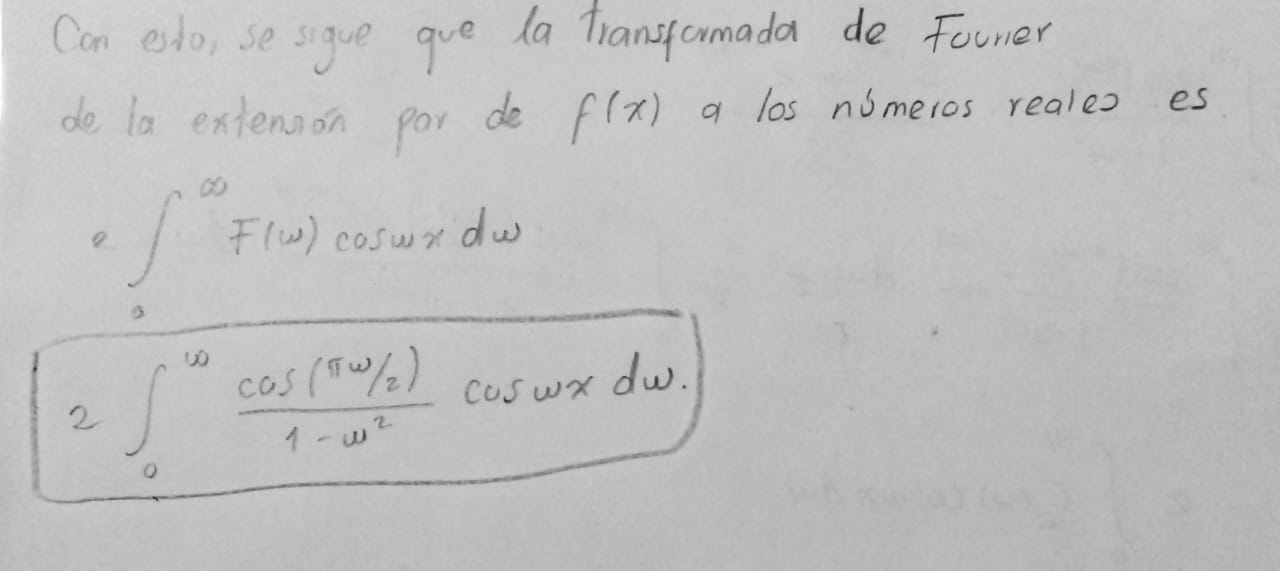 Con esto, se sigue que la transformada de Fourier
de la extensión par de f(x) a los números reales es
2 ∫₀^∞ F(ω) cos ωx dω
2 ∫₀^∞ cos(πω/2) / (1 - ω²) cos ωx dω.